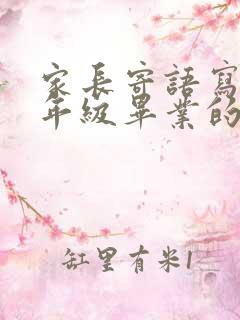 家長寄語寫
年級畢業的
缸里有米1